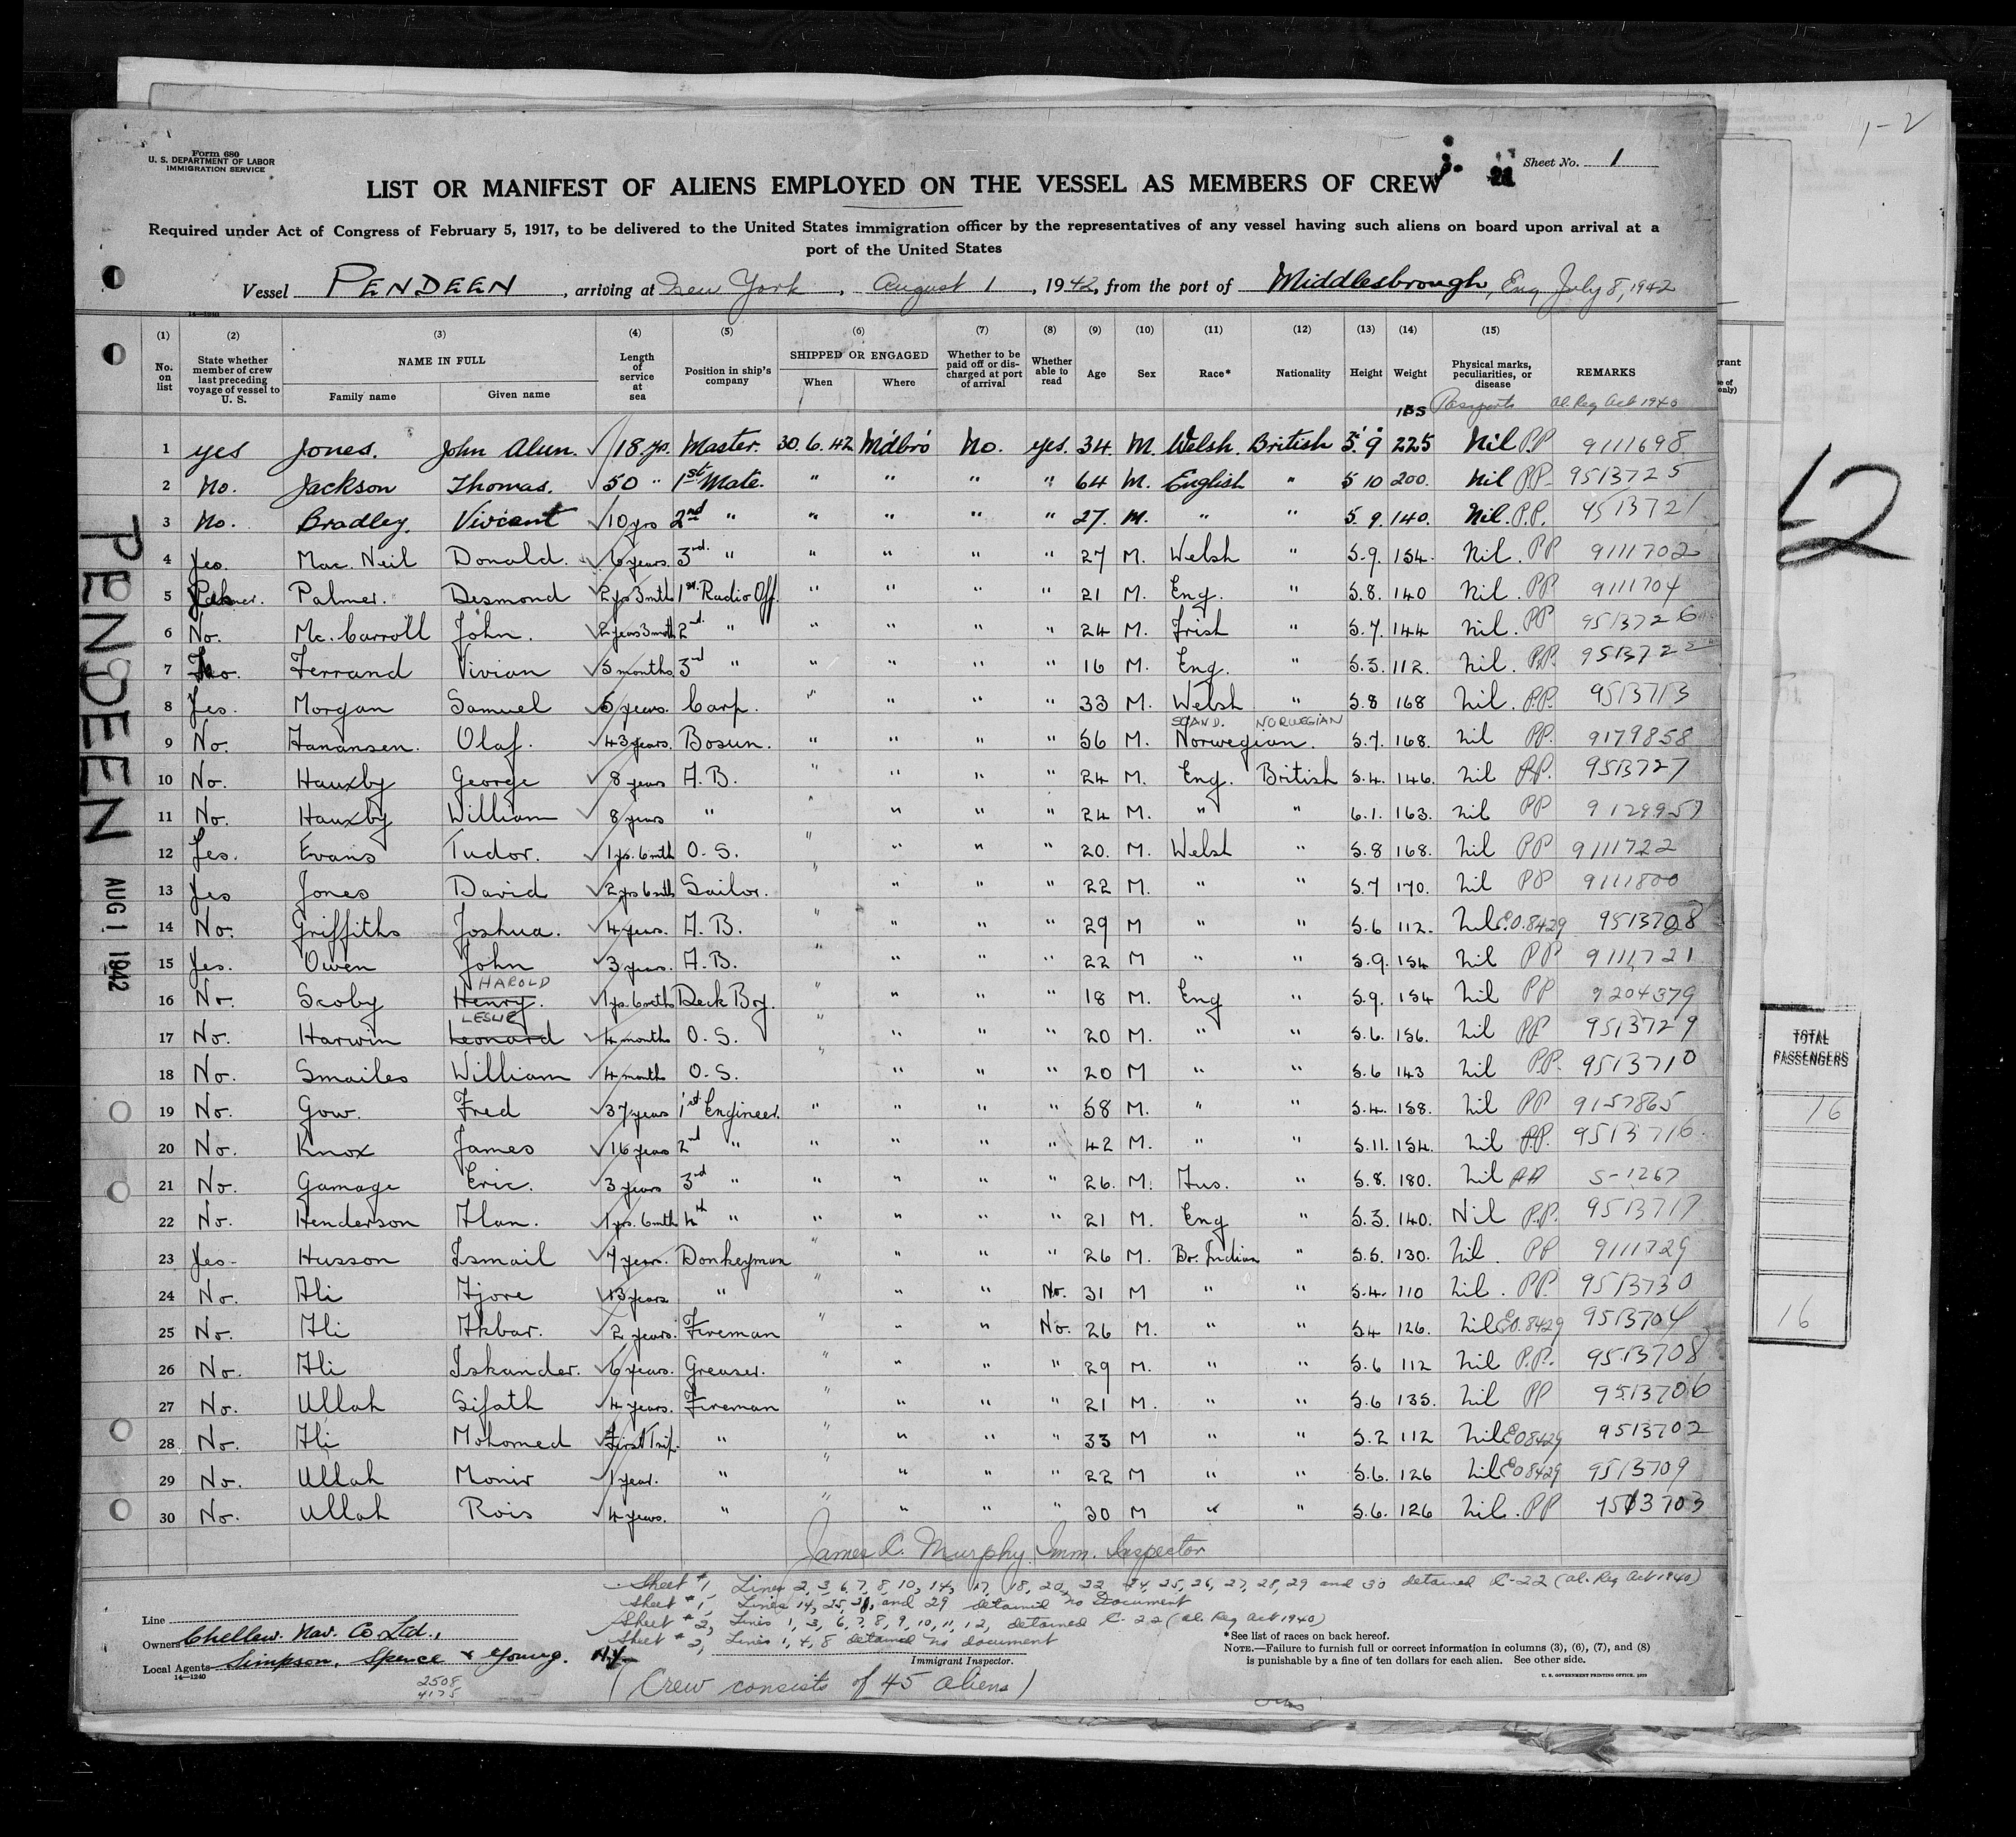 1-2
Form 680
U. S. DEPARTMENT OF LABOR
IMMIGRATION SERVICE
Sheet No. 1
LIST OR MANIFEST OF ALIENS EMPLOYED ON THE VESSEL AS MEMBERS OF CREW
Required under Act of Congress of February 5, 1917, to be delivered to the United States immigration officer by the representatives of any vessel having such aliens on board upon arrival at a
port of the United States
Vessel PENDEEN, arriving at New York, August 1, 1942, from the port of Middlesbrough, Eng July 8, 1942
14—1240
(1) (2) (3) (4) (5) (6) (7) (8) (9) (10) (11) (12) (13) (14) (15)
No. on list State whether member of crew last preceding voyage of vessel to U. S. NAME IN FULL Family name Given name Length of service at sea Position in ship's company SHIPPED OR ENGAGED When Where Whether to be paid off or discharged at port of arrival Whether able to read Age Sex Race* Nationality Height Weight Physical marks, peculiarities, or disease REMARKS
lbs Passports Al. Reg Act 1940
1 yes Jones. John Alun. 18 yrs. Master. 30.6.42 M'dbro No. yes. 34 M. Welsh. British 5' 9" 225 Nil PP 9111698
2 No. Jackson Thomas. 50 " 1st Mate. " " " " 64 M. English " 5 10 200. Nil P.P. 9513725
3 No. Bradley Vivient 10 yrs 2nd " " " " " 27. M. " " 5. 9. 140. Nil. P.P. 9513721
4 Yes. Mac. Neil Donald. 6 years. 3rd " " " " " 27 M. Welsh " 5.9. 154. Nil. PP 9111702
5 Palmer. Desmond 2 yrs 3 mth 1st Radio Off. " " " " 21 M. Eng. " 5.8. 140 Nil. PP 9111704
6 No. Mc. Carroll John. 2 years 3 mth 2nd " " " " " 24 M. Irish " 5.7. 144 Nil. PP 9513726
7 No. Ferrand Vivian 5 months 3rd " " " " " 16 M. Eng. " 5.3. 112. Nil. P.P. 9513722
8 Yes. Morgan Samuel 5 years. Carp. " " " " 33 M. Welsh " 5.8 168 Nil. P.P. 9513713
SCAND. NORWEGIAN
9 No. Hanansen. Olaf. 43 years. Bosun. " " " " 56 M. Norwegian. 5.7. 168. Nil PP. 9179858
10 No. Hauxby George 8 years A.B. " " " " 24 M. Eng. British 5.4. 146. Nil P.P. 9513727
11 No. Hauxby William 8 years " " " " " 24 M. " " 6.1. 163. Nil PP 9129957
12 Yes. Evans Tudor. 1 yr. 6 mth O.S. " " " " 20. M. Welsh " 5.8 168. Nil PP 9111722
13 Yes Jones David 2 yrs 6 mth Sailor. " " " " 22 M. " " 5.7 170. Nil PP 9111800
14 No. Griffiths Joshua. 4 years. A.B. " " " " 29 M " " 5.6 112. Nil E.O. 8429 9513728
15 Yes. Owen John 3 years. A.B. " " " " 22 M " " 5.9. 154 Nil PP 9111721
HAROLD
16 No. Scoby Henry. 1 yr. 6 mths Deck Boy. " " " " 18 M. Eng " 5.9. 154 Nil PP 9204379
LESLIE
17 No. Harwin Leonard 4 months O.S. " " " " 20 M. " " 5.6. 156. Nil PP 9513729
18 No. Smailes William 4 months O.S. " " " " 20 M " " 5.6 143 Nil P.P. 9513710
19 No. Gow. Fred 37 years 1st Engineer. " " " " 58 M. " " 5.4. 158. Nil PP 9157865
20 No. Knox James 16 years 2nd " " " " " 42 M. " " 5.11. 154. Nil P.P. 9513716
21 No. Gamage Eric. 3 years 3rd " " " " " 26. M. Aus. " 5.8. 180. Nil S-1267
22 No. Henderson Alan. 1 yr. 6 mth 4th " " " " " 21 M. Eng " 5.3. 140. Nil P.P. 9513717
23 Yes- Husson Ismail 7 years. Donkeyman " " " " 26 M. Br. Indian " 5.5. 130. Nil. PP 9111729
24 No. Ali Ajore 13 years " " " " No. 31 M " " 5.4. 110 Nil. P.P. 9513730
25 No. Ali Akbar. 2 years. Fireman " " " No. 26 M. " " 5.4 126. Nil E.O. 8429 9513704
26 No. Ali Iskander. 6 years. Greaser. " " " " 29 M. " " 5.6 112 Nil P.P. 9513708
27 No. Ullah Sifath 4 years. Fireman " " " " 21 M. " " 5.6 135. Nil PP 9513706
28 No. Ali Mohomed First Trip. " " " " " 33 M " " 5.2 112 Nil EO 8429 9513702
29 No. Ullah Monir 1 year. " " " " " 22 M " " 5.6. 126 Nil EO 8429 9513709
30 No. Ullah Rois 4 years. " " " " " 30 M " " 5.6. 126 Nil. PP 9513703
James C. Murphy Imm. Inspector
Sheet #1, Lines 2, 3, 6, 7, 8, 10, 14, 17, 18, 20, 22, 24, 25, 26, 27, 28, 29 and 30 detained C-22 (Al. Reg Act 1940)
Sheet #1, Lines 14, 25, 28, and 29 detained no Document
Sheet #2, Lines 1, 3, 6, 7, 8, 9, 10, 11, 12, detained C-22 (Al. Reg Act 1940)
Sheet #2, Lines 1, 4, 8 detained no document
Line
Owners Chellew. Nav. Co Ltd.,
Local Agents Simpson, Spence & Young. N.Y.
14—1240
2508
4175
Immigrant Inspector.
(Crew consists of 45 aliens)
*See list of races on back hereof.
NOTE.—Failure to furnish full or correct information in columns (3), (6), (7), and (8)
is punishable by a fine of ten dollars for each alien. See other side.
U. S. GOVERNMENT PRINTING OFFICE
PENDEEN
AUG 1 1942
12
TOTAL
PASSENGERS
16
16